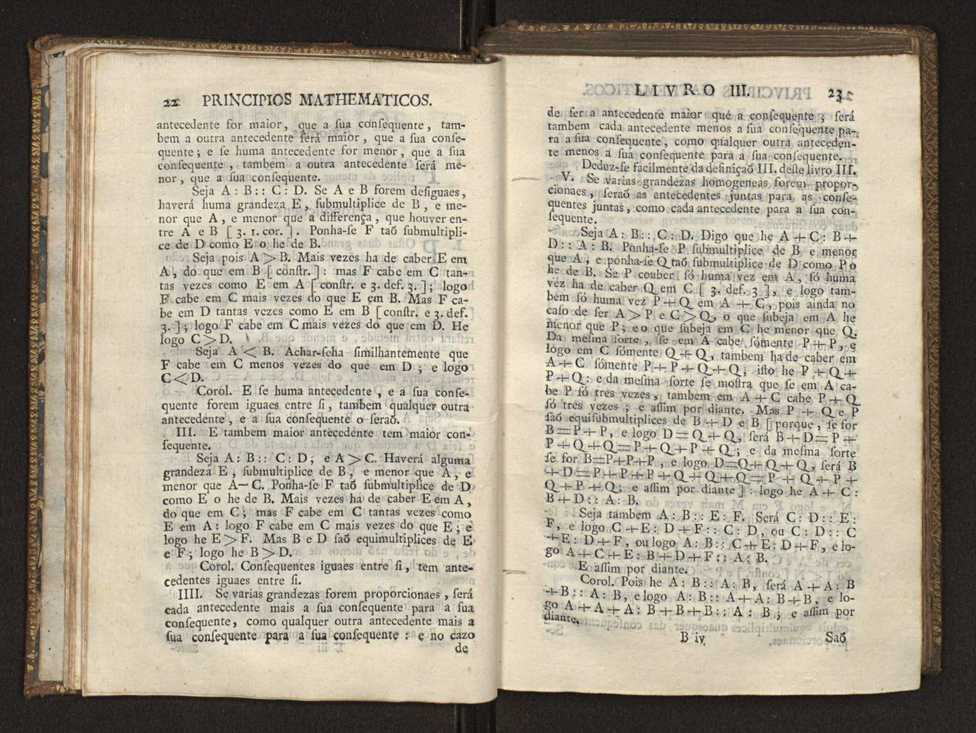 22 PRINCIPIOS MATHEMATICOS.
antecedente for maior, que a sua consequente, tam-
bem a outra antecedente será maior, que a sua conse-
quente; e se huma antecedente for menor, que a sua
consequente, tambem a outra antecedente será me-
nor, que a sua consequente.
Seja A : B :: C : D. Se A e B forem desiguaes,
haverá huma grandeza E, submultiplice de B, e me-
nor que A, e menor que a differença, que houver en-
tre A e B [ 3. 1. cor. ]. Ponha-se F taõ submultipli-
ce de D como E o he de B.
Seja pois A > B. Mais vezes ha de caber E em
A, do que em B [ constr. ] : mas F cabe em C tan-
tas vezes como E em A [ constr. e 3. def. 3. ] ; logo
F cabe em C mais vezes do que E em B. Mas F ca-
be em D tantas vezes como E em B [ constr. e 3. def.
3. ] ; logo F cabe em C mais vezes do que em D. He
logo C > D.
Seja A < B. Achar-seha similhantemente que
F cabe em C menos vezes do que em D ; e logo
C < D.
Corol. E se huma antecedente, e a sua conse-
quente forem iguaes entre si, tambem qualquer outra
antecedente, e a sua consequente o seraõ.
III. E tambem maior antecedente tem maior con-
sequente.
Seja A : B :: C : D, e A > C. Haverá alguma
grandeza E, submultiplice de B, e menor que A, e
menor que A — C. Ponha-se F taõ submultiplice de D
como E o he de B. Mais vezes ha de caber E em A,
do que em C ; mas F cabe em C tantas vezes como
E em A : logo F cabe em C mais vezes do que E ; e
logo he E > F. Mas B e D saõ equimultiplices de E
e F ; logo he B > D.
Corol. Consequentes iguaes entre si, tem ante-
cedentes iguaes entre si.
IIII. Se varias grandezas forem proporcionaes, será
cada antecedente mais a sua consequente para a sua
consequente, como qualquer outra antecedente mais a
sua consequente para a sua consequente : e no cazo
de
LIVRO III. 23
de ser a antecedente maior que a consequente ; será
tambem cada antecedente menos a sua consequente pa-
ra a sua consequente, como qualquer outra anteceden-
te menos a sua consequente para a sua consequente.
Deduz-se facilmente da definiçaõ III. deste livro III.
V. Se varias grandezas homogeneas forem propor-
cionaes, seraõ as antecedentes juntas para as conse-
quentes juntas, como cada antecedente para a sua con-
sequente.
Seja A : B :: C : D. Digo que he A + C : B +
D :: A : B. Ponha-se P submultiplice de B e menor
que A, e ponha-se Q taõ submultiplice de D como P o
he de B. Se P couber só huma vez em A, só huma
vez ha de caber Q em C [ 3. def. 3 ], e logo tam-
bem só huma vez P + Q em A + C, pois ainda no
caso de ser A > P e C > Q, o que subeja em A he
menor que P ; e o que subeja em C he menor que Q.
Da mesma sorte, se em A cabe sómente P + P, e
logo em C sómente Q + Q, tambem ha de caber em
A + C sómente P + P + Q + Q ; isto he P + Q +
P + Q : e da mesma sorte se mostra que se em A ca-
be P só tres vezes, tambem em A + C cabe P + Q
só tres vezes ; e assim por diante. Mas P + Q e P
saõ equisubmultiplices de B + D e B [ porque, se for
B = P + P, e logo D = Q + Q, será B + D = P +
P + Q + Q = P + Q + P + Q ; e da mesma sorte
se for B = P + P + P, e logo D = Q + Q + Q, será B
+ D = P + P + P + Q + Q + Q = P + Q + P +
Q + P + Q ; e assim por diante ] : logo he A + C :
B + D :: A : B.
Seja tambem A : B :: E : F. Será C : D :: E :
F, e logo C + E : D + F :: C : D, ou C : D :: C
+ E : D + F, ou logo A : B :: C + E : D + F, e lo-
go A + C + E : B + D + F :: A : B.
E assim por diante.
Corol. Pois he A : B :: A : B, será A + A : B
+ B :: A : B, e logo A : B :: A + A : B + B, e lo-
go A + A + A : B + B + B :: A : B ; e assim por
diante.
B iv Saõ